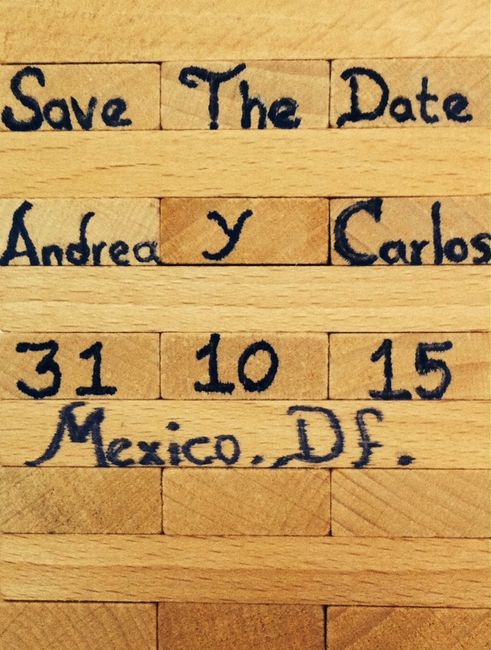 Save The Date
Andrea y Carlos
31 10 15
Mexico. Df.